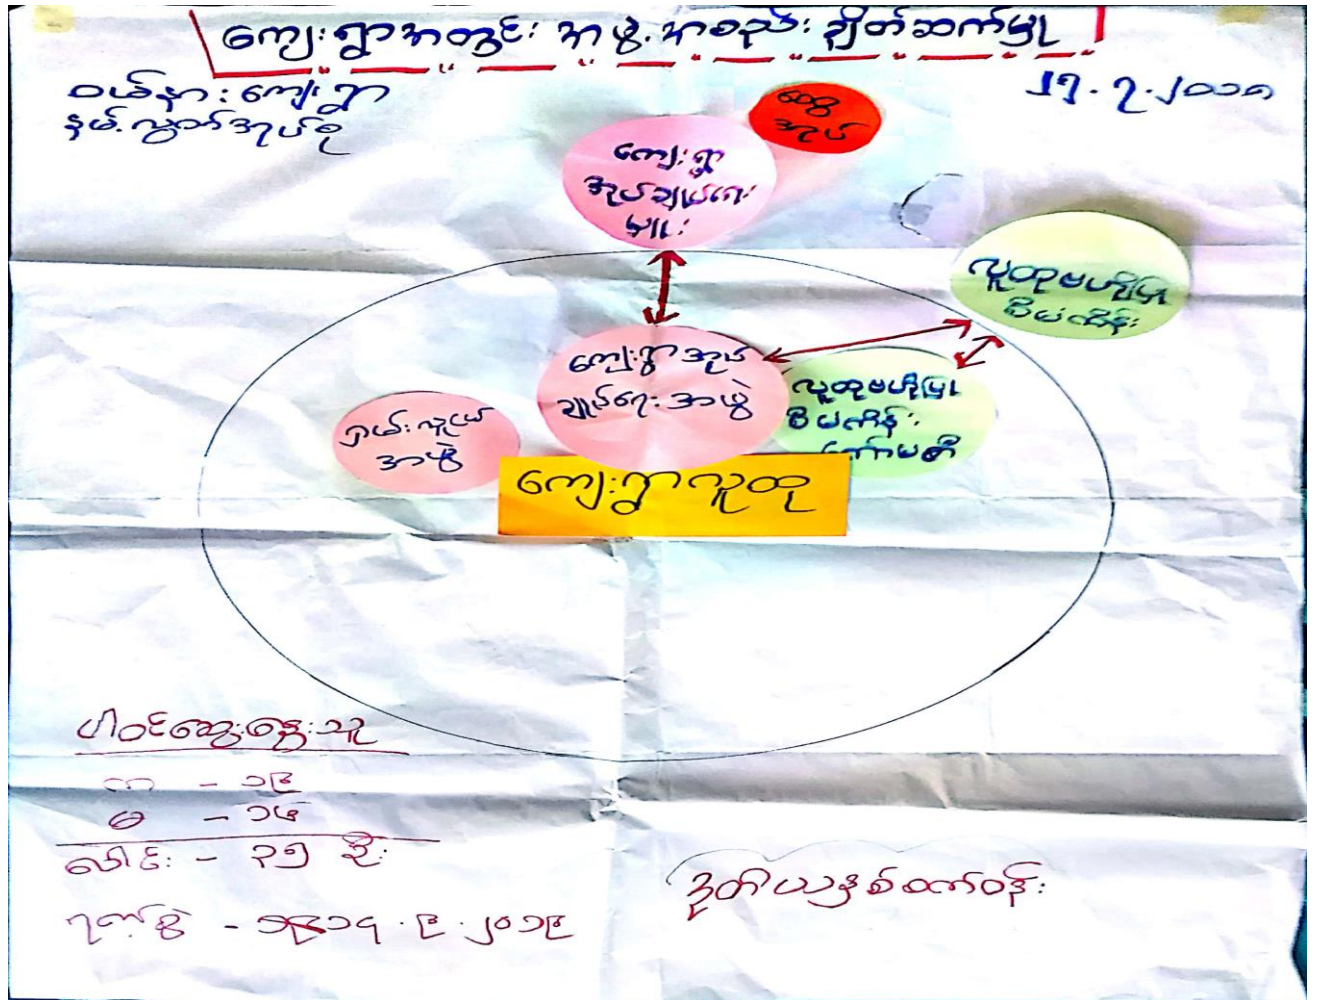 ကျေးရွာအတွင်း အဖွဲ့အစည်း ချိတ်ဆက်မှု
ဝယ်နား ကျေးရွာ
နမ့်လွတ်အုပ်စု
၁၇.၇.၂၀၁၈
ဆွေ
အုပ်
ကျေးရွာ
အုပ်ချုပ်ရေး
မှူး
လူထုဗဟိုပြု
စီမံကိန်း
ကျေးရွာအုပ်
ချုပ်ရေးအဖွဲ့
လူထုဗဟိုပြု
စီမံကိန်း
ကော်မတီ
ရှမ်းလူငယ်
အဖွဲ့
ကျေးရွာလူထု
ပါဝင်ဆွေးနွေးသူ
ကျား - ၁၉
မ - ၁၆
ပေါင်း - ၃၅ ဦး
ရက်စွဲ - ၁၄.၉.၂၀၁၉
ဒုတိယနှစ်စက်ဝန်း